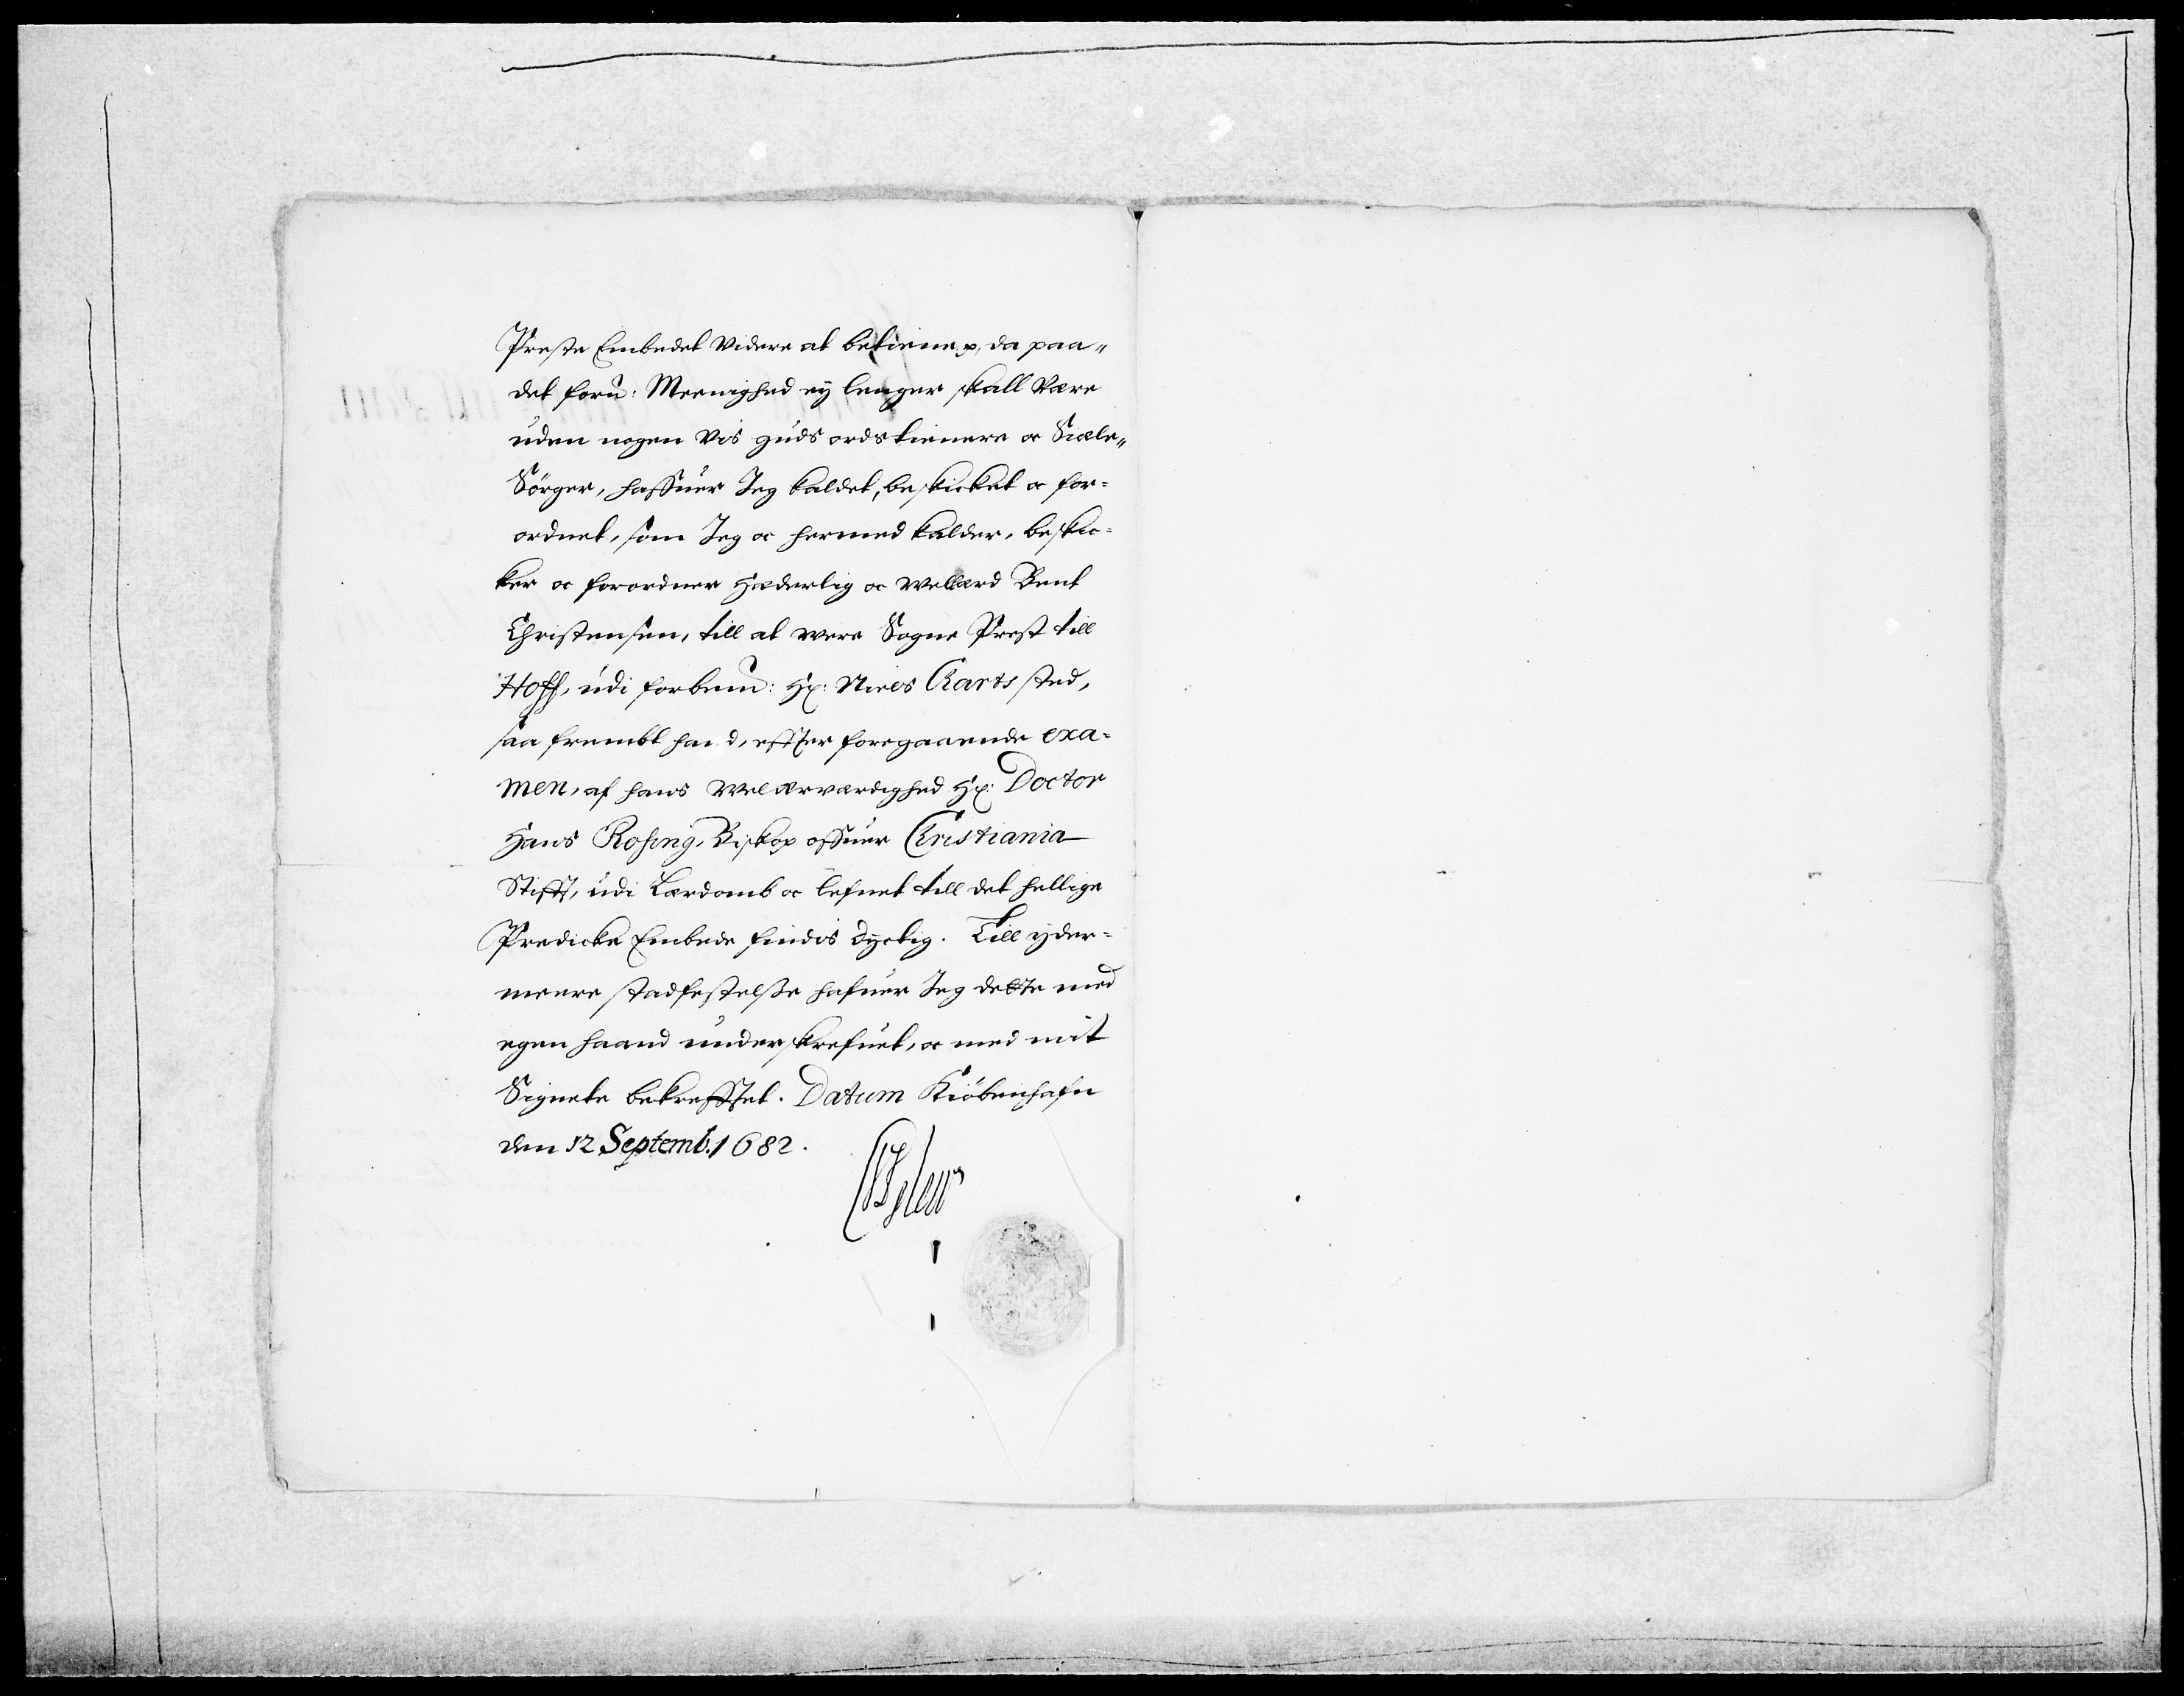 Preste Embedet videre at betiene, da paa„
det forn: Meenighed ey lenger skall være
uden nogen vis guds ords tienere oc Siæle„
Sörger, haffuer Jeg kaldet, beskicket oc for=
ordnet, som Jeg oc hermed kalder, beskic=
ker oc forordner Hæderlig oc Wellærd Bent
Christensen, till at were Sogne Prest till
Hoff, udi forbem: Hr: Niels sted,
saa frembt hand, effter foregaaende exa=
men, af hans Welærværdighed Hr: Doctor
Hans Rosing, Biskop offuer Christiania
Stifft, udi Lærdomb oc lefnet till det hellige
Predicke Embede findis dyctig. Till yder=
meere stadfestelsse hafuer Jeg dette med
egen haand underskrefuet, oc med mit
Signete bekrefftet. Datum Kiöbenhafn
den 12 Septemb. 1682.